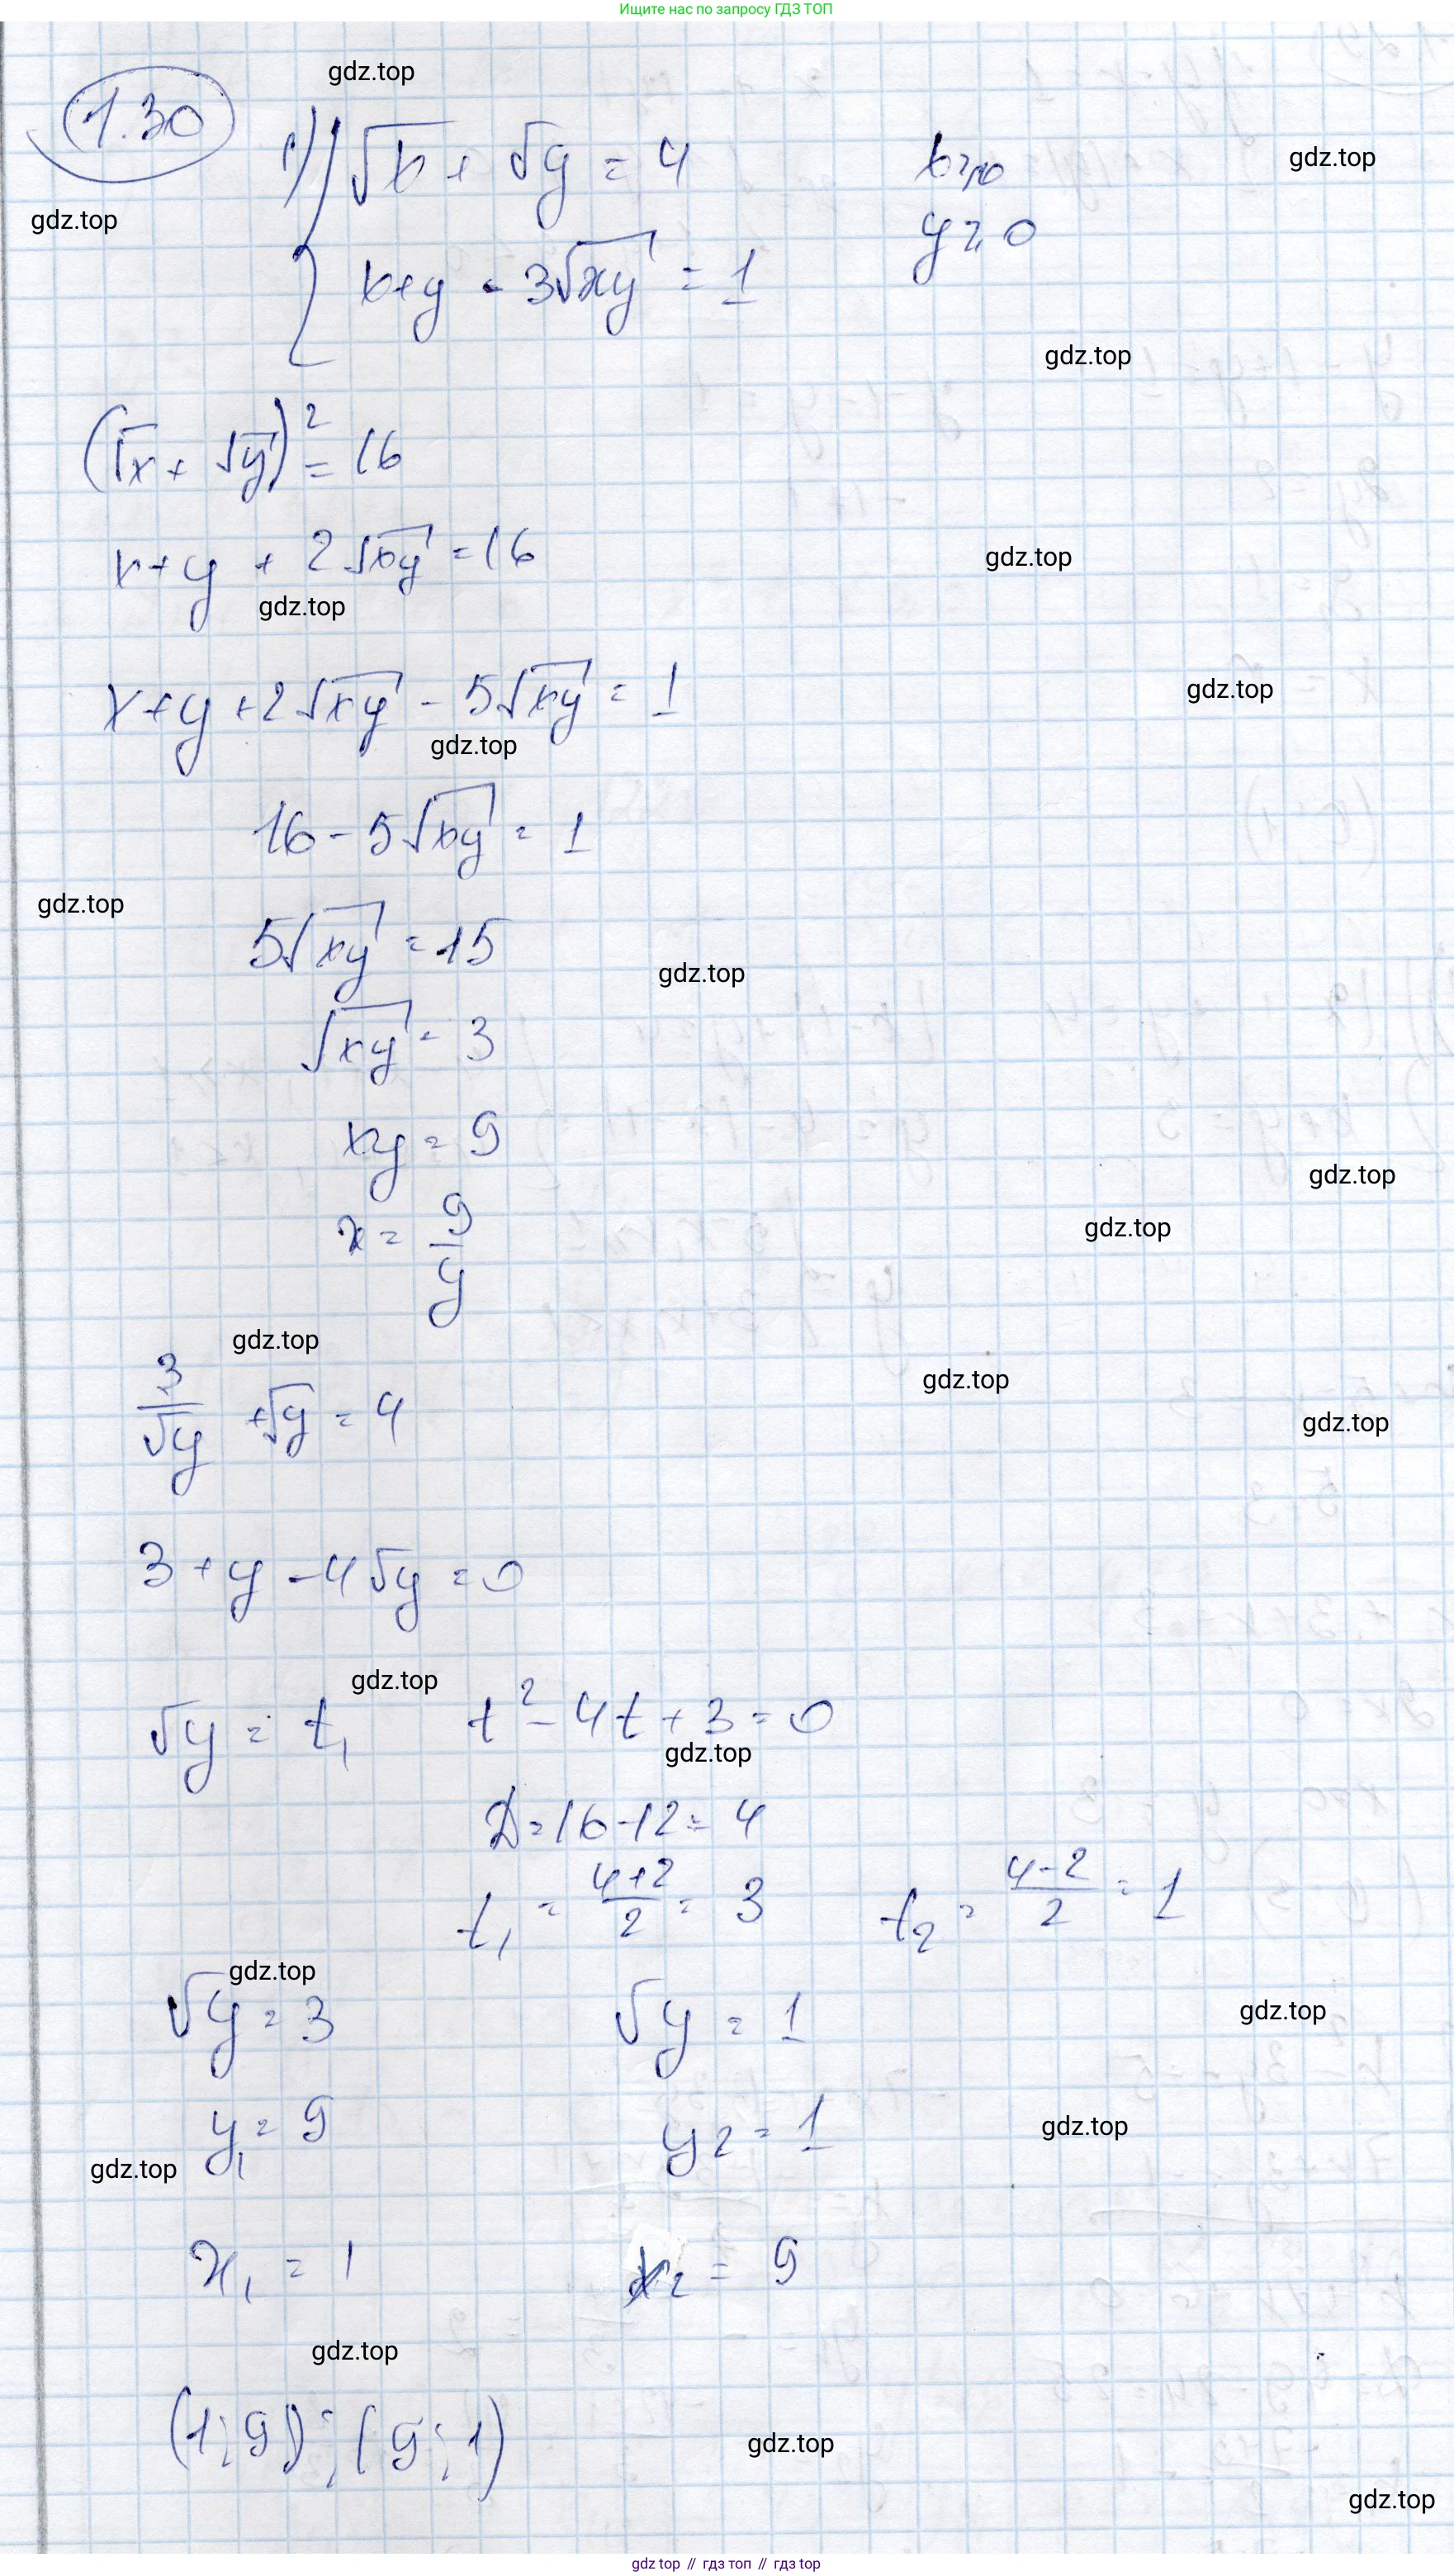 Ищите нас по запросу ГДЗ ТОП
gdz.top
1.30
1) { √x + √y = 4
x ≥ 0
gdz.top
gdz.top
y ≥ 0
x+y - 3√xy = 1
gdz.top
(√x + √y)² = 16
x+y + 2√xy = 16
gdz.top
gdz.top
x+y+2√xy - 5√xy = 1
gdz.top
gdz.top
16 - 5√xy = 1
gdz.top
5√xy = 15
gdz.top
√xy = 3
xy = 9
gdz.top
x = 9/y
gdz.top
gdz.top
3/√y + √y = 4
gdz.top
gdz.top
3 + y - 4√y = 0
gdz.top
√y = t, t² - 4t + 3 = 0
gdz.top
D = 16 - 12 = 4
t₁ = (4+2)/2 = 3 t₂ = (4-2)/2 = 1
gdz.top
√y = 3 √y = 1
gdz.top
y₁ = 9 y₂ = 1
gdz.top
gdz.top
x₁ = 1 x₂ = 9
gdz.top
(1; 9); (9; 1)
gdz.top
gdz.top
gdz top // гдз топ // гдз top